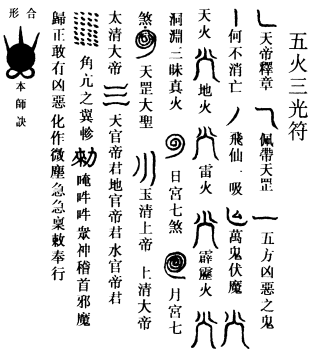 五火三光符
天帝釋章 佩帶天罡 五方凶惡之鬼
何不消亡 飛仙一吸 萬鬼伏魔
天火 地火 雷火 霹靂火
洞淵三昧真火 日宮七煞 月宮七
煞 天罡大聖 玉清上帝 上清大帝
太清大帝 天官帝君地官帝君水官帝君
角亢之翼軫 勑 唵吽吽眾神稽首邪魔
歸正敢有凶惡化作微塵急急稟敕奉行
合形
本師訣